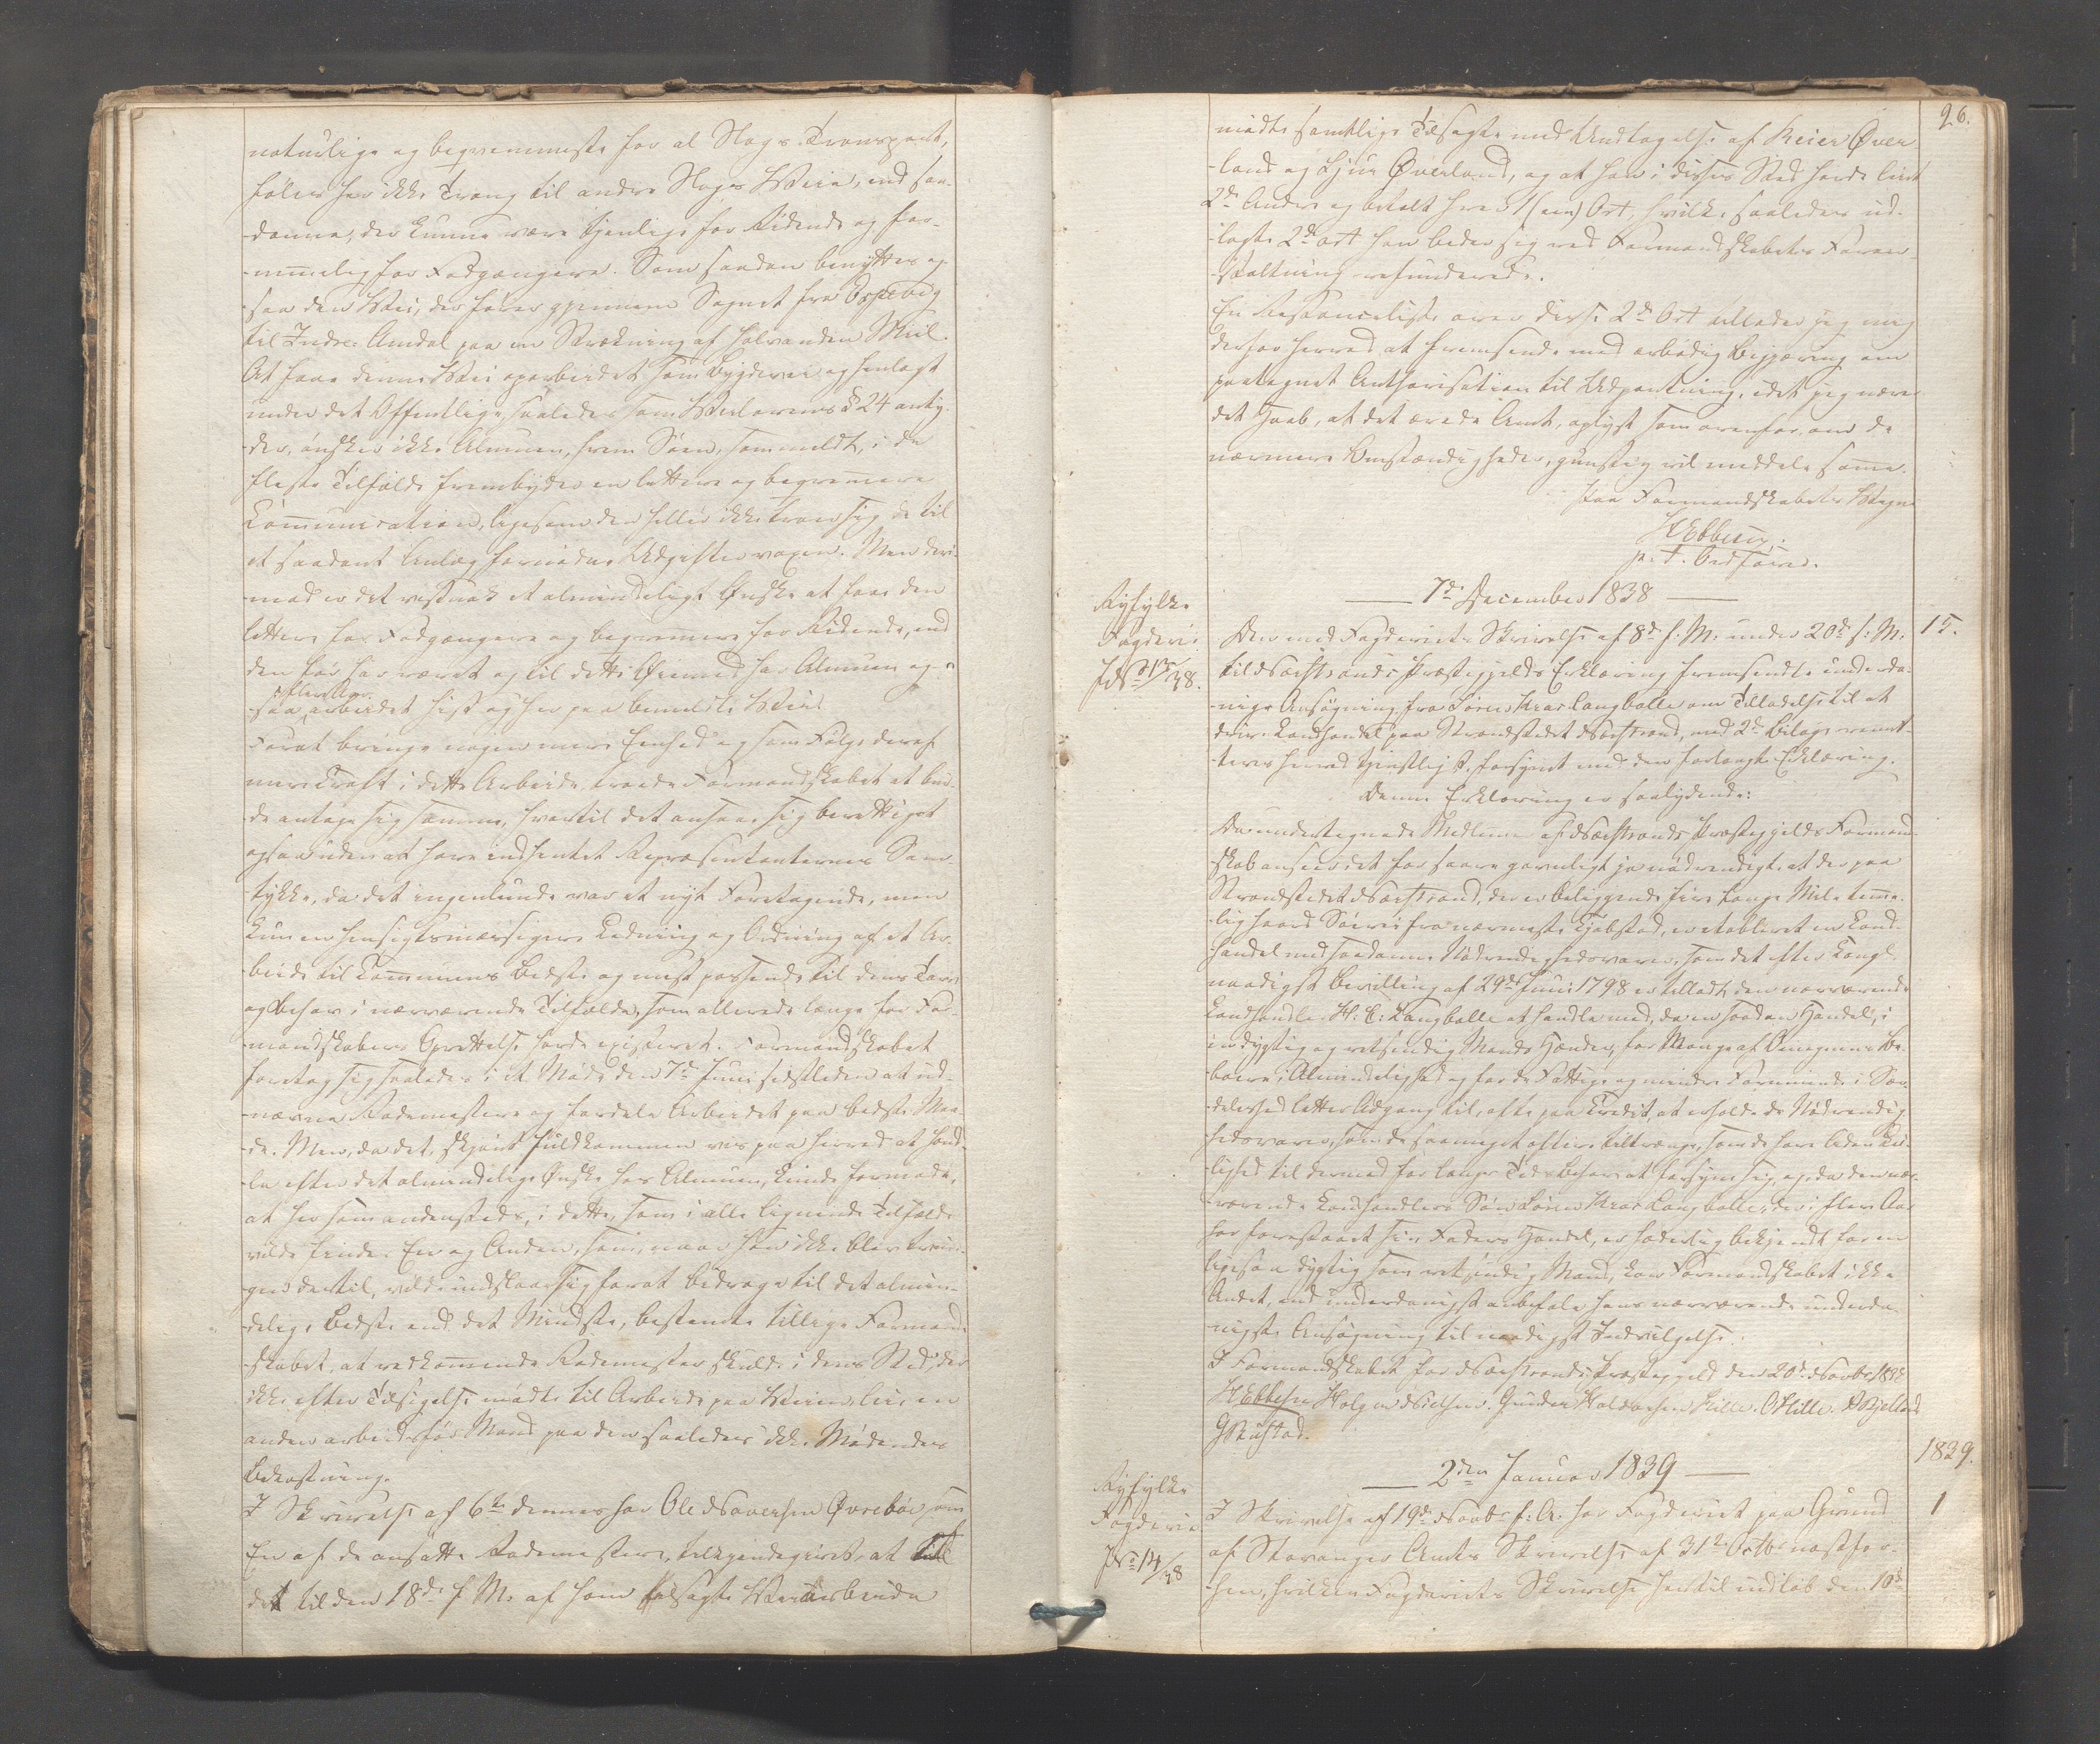 naturlige og beqvemmeste for al Slags Transport,
føles her ikke Trang til andre Slags Veie, end saa-
-danne, der kunne være tjenlige for Ridende og for-
-nemmelig for Fodgængere. Som saadan benyttes og-
-saa den Vei, der fører gjennem Sognet fra
til Indre-Amdal paa en Strækning af halvanden Miil.
At faae denne Vei oparbeidet som Bygdevei og henlagt
under det Offentlige, saaledes som Veilovens § 24 anty-
-der, ønsker ikke Almuen, hvem Søen, som meldt, i de
fleste Tilfælde frembyder en lettere og beqvemmere
Communication, ligesom den heller ikke troer sig de til
et saadant Anlæg fornødne Udgifter voxen. Men deri-
-mod er det vistnok et almindeligt Ønske at faae den
lettere for Fodgængere og beqvemmere for Ridende, end
den før har været og til dette Øiemed har Almuen og-
-saa arbeidet hist og her paa bemeldte Vei.
Forat bringe nogen mere Eenhed og som Følge deraf
mere Kraft i dette Arbeide, troede Formandskabet at bur-
-de antage sig samme, hvortil det ansaae sig berettiget
ogsaa uden at have indhentet Repræsentanternes Sam-
-tykke, da det ingenlunde var et nyt Foretagende, men
kun en hensigtsmæssigere Ledning og Ordning af et Ar-
-beide til Communens Bedste og mest passende til dens Tarv
og Behov i nærværende Tilfælde, som allerede længe før For-
-mandskabets Oprettelse havde existeret. Formandskabet
foretog sig saaledes i et Møde den 7de Juni sidstleden at ud-
-nævne Rodemestere og fordele Arbeidet paa bedste Maa-
-de. Men, da det, skjønt fuldkommen vis paa herved at hand-
-le efter det almindelige Ønske hos Almuen, kunde formode,
at her som andensteds, i dette, som i alle lignende Tilfælde
vilde findes En og Anden, som, naar han ikke blev tvun-
-gen dertil, vilde undslaae sig forat bidrage til det almin-
-delige Bedste end det Mindste, bestemte tillige Formand-
-skabet, at vedkommende Rodemester skulde i dens Sted, der
ikke efter Tilsigelse mødte til Arbeide paa Veien, leie en
anden arbeidsfør Mand paa den saaledes ikke Mødendes
Bekostning.
I Skrivelse af 6te dennes har Ole Øvrebøe, som
En af de ansatte Rodemestere, tilkjendegivet, at
det til den 18de f. M. af ham tilsagte Veiarbeide
26.
mødte samtlige Tilsagte med Undtagelse af Reier Øver
-land og Sjur Øverland, og at han i disses Sted havde leiet
2de Andre og betalt hver 1 (een) Ort, hvilke saaledes ud-
-lagte 2de Ort han beder sig ved Formandskabets Foran-
-staltning refunderede.
En Restanceliste over disse 2de Ort tillader jeg mig
derfor herved at fremsende med ærbødig Begjæring om
paategnet Authorisation til Udpantning, idet jeg nærer
det Haab, at det ærede Amt, oplyst som ovenfor om de
nærmere Omstændigheder, gunstig vil meddele samme.
Paa Formandskabets Vegne
HEbbesen
p. t. Ordfører.
7de December 1838
Ryfylke
Fogderie
15.
Den med Fogderiets Skrivelse af 8de f. M. under 20de f. M.
til Nærstrands Præstegjelds Erklæring fremsendte underda-
-nige Ansøgning fra Søren Langballe om Tilladelse til at
drive Landhandel paa Strandstedet Nærstrand, med 2de Bilage remit-
-teres herved tjenstligst, forsynet med den forlangte Erklæring.
Denne Erklæring er saalydende:
De undertegnede Medlemmer af Nærstrands Præstegjelds Formand-
-skab ansee det for saare gavnligt, ja nødvendigt, at der paa
Strandstedet Nærstrand, der er beliggende fire lange Mile temme-
-lig haard Søvei fra nærmeste Kjøbstad, er etableret en Land-
handel med saadanne Nødvendighedsvarer, som det efter Kongl.
naadigst Bevilling af 29de Juni 1798 er tilladt den nærværende
Landhandler H: C: Langballe at handle med, da en saadan Handel, i
en dygtig og retsindig Mands Hænder, for Mange af Omegnens Be-
-boere i Almindelighed og for de Fattige og mindre Formuende i Sær-
-deleshed letter Adgang til, ofte paa Credit, at erholde de Nødvendig-
-hedsvarer, som de saameget oftere tiltrænge, som de have liden Lei-
-lighed til dermed for lange Tids Behov at forsyne sig, og da den nær-
-værende Landhandlers Søn Søren Langballe, der i flere Aar
har forestaaet sin Faders Handel, er hæderlig bekjendt for en
ligesaa dygtig som retsindig Mand, kan Formandskabet ikke
Andet, end underdanigst anbefale hans nærværende underda-
-nigste Ansøgning til naadigst Indvilgelse.
I Formandskabet for Nærstrands Præstegjeld den 20de Novbr 1838
HEbbesen Holger Nielsen. Gunder Halvorsen Hille. OHille.
GRustad.
1839.
2den Januar 1839
Ryfylke
Fogderie
1
I Skrivelse af 19de Novbr f. A. har Fogderiet paa Grund
af Stavanger Amts Skrivelse af 31te Octbr næstfor-
-hen, hvilken Fogderiets Skrivelse hertil indløb den 10de